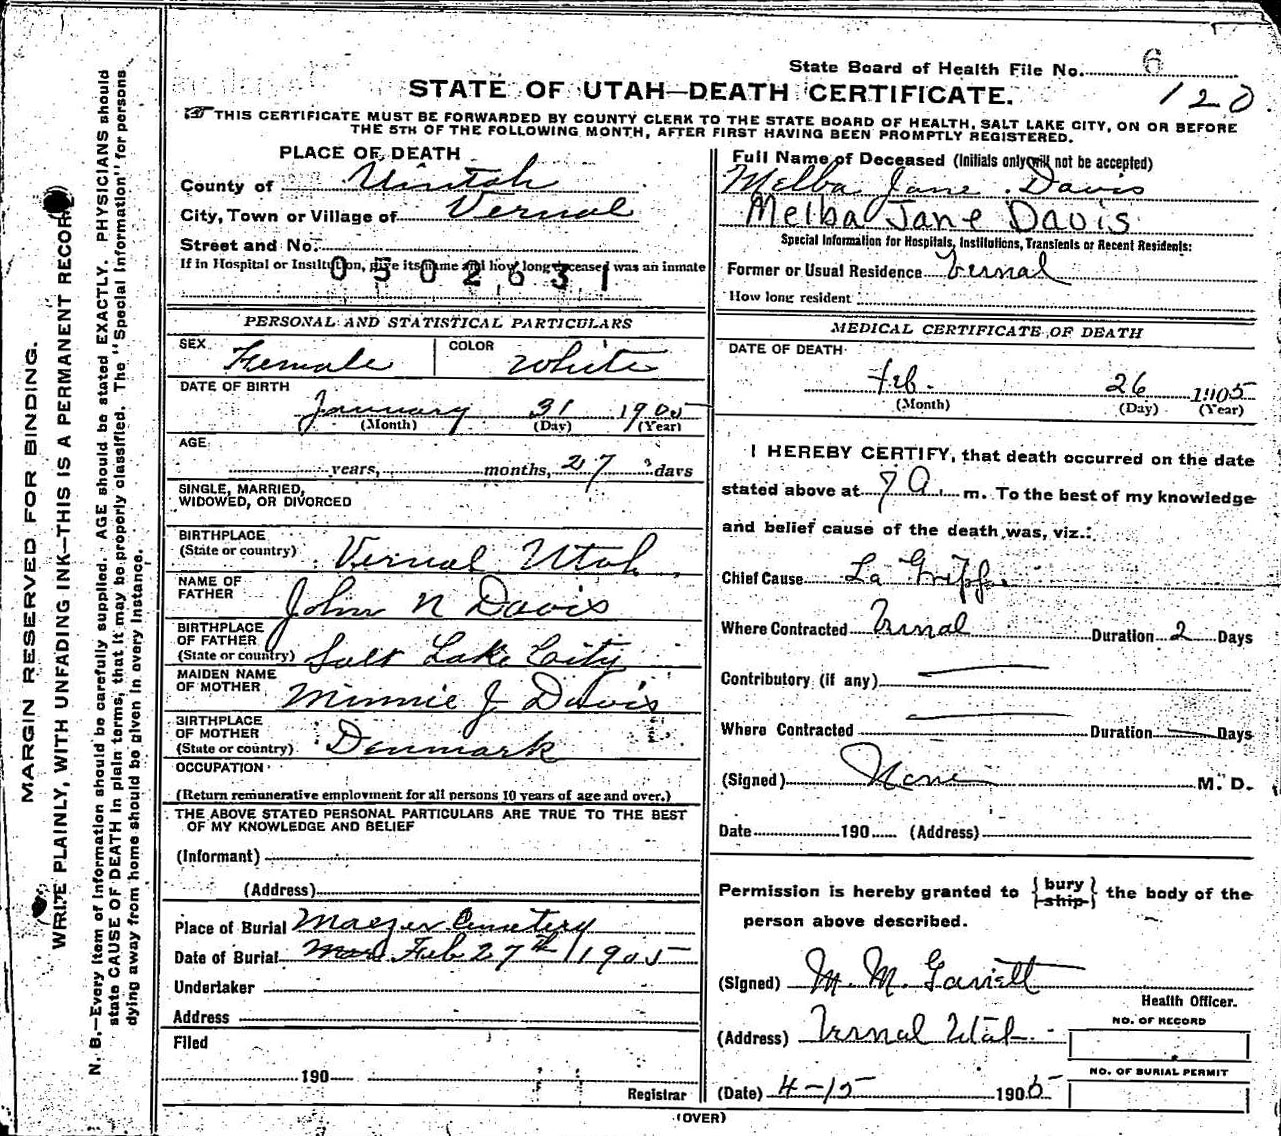 State Board of Health File No. 6
120
STATE OF UTAH—DEATH CERTIFICATE.
THIS CERTIFICATE MUST BE FORWARDED BY COUNTY CLERK TO THE STATE BOARD OF HEALTH, SALT LAKE CITY, ON OR BEFORE
THE 5TH OF THE FOLLOWING MONTH, AFTER FIRST HAVING BEEN PROMPTLY REGISTERED.
PLACE OF DEATH
County of Uintah
City, Town or Village of Vernal
Street and No.
If in Hospital or Institution, give its name and how long deceased was an inmate
0502631
Full Name of Deceased (Initials only will not be accepted)
Melba Jane Davis
Melba Jane Davis
Special Information for Hospitals, Institutions, Transients or Recent Residents:
Former or Usual Residence Vernal
How long resident
PERSONAL AND STATISTICAL PARTICULARS
SEX Female COLOR White
DATE OF BIRTH
January 31 1905
(Month) (Day) (Year)
AGE
years, months, 27 days
SINGLE, MARRIED,
WIDOWED, OR DIVORCED
BIRTHPLACE
(State or country) Vernal Utah
NAME OF
FATHER John N Davis
BIRTHPLACE
OF FATHER
(State or country) Salt Lake City
MAIDEN NAME
OF MOTHER Minnie J Davis
BIRTHPLACE
OF MOTHER
(State or country) Denmark
OCCUPATION
(Return remunerative employment for all persons 10 years of age and over.)
THE ABOVE STATED PERSONAL PARTICULARS ARE TRUE TO THE BEST
OF MY KNOWLEDGE AND BELIEF
(Informant)
(Address)
Place of Burial Maeser Cemetery
Date of Burial Mar Feb 27th 1905
Undertaker
Address
Filed
190
Registrar
MEDICAL CERTIFICATE OF DEATH
DATE OF DEATH
Feb. 26 1905
(Month) (Day) (Year)
I HEREBY CERTIFY, that death occurred on the date
stated above at 7 A. m. To the best of my knowledge
and belief cause of the death was, viz.:
Chief Cause La Gripp.
Where Contracted Vernal Duration 2 Days
Contributory (if any)
Where Contracted Duration Days
(Signed) None M. D.
Date 190 (Address)
Permission is hereby granted to {bury
ship} the body of the
person above described.
(Signed) M. M. Garrett
Health Officer.
(Address) Vernal Utah
NO. OF RECORD
NO. OF BURIAL PERMIT
(Date) 4-15 1905
(OVER)
MARGIN RESERVED FOR BINDING.
WRITE PLAINLY, WITH UNFADING INK—THIS IS A PERMANENT RECORD
N. B.—Every item of information should be carefully supplied. AGE should be stated EXACTLY. PHYSICIANS should
state CAUSE OF DEATH in plain terms, that it may be properly classified. The "Special Information" for persons
dying away from home should be given in every instance.